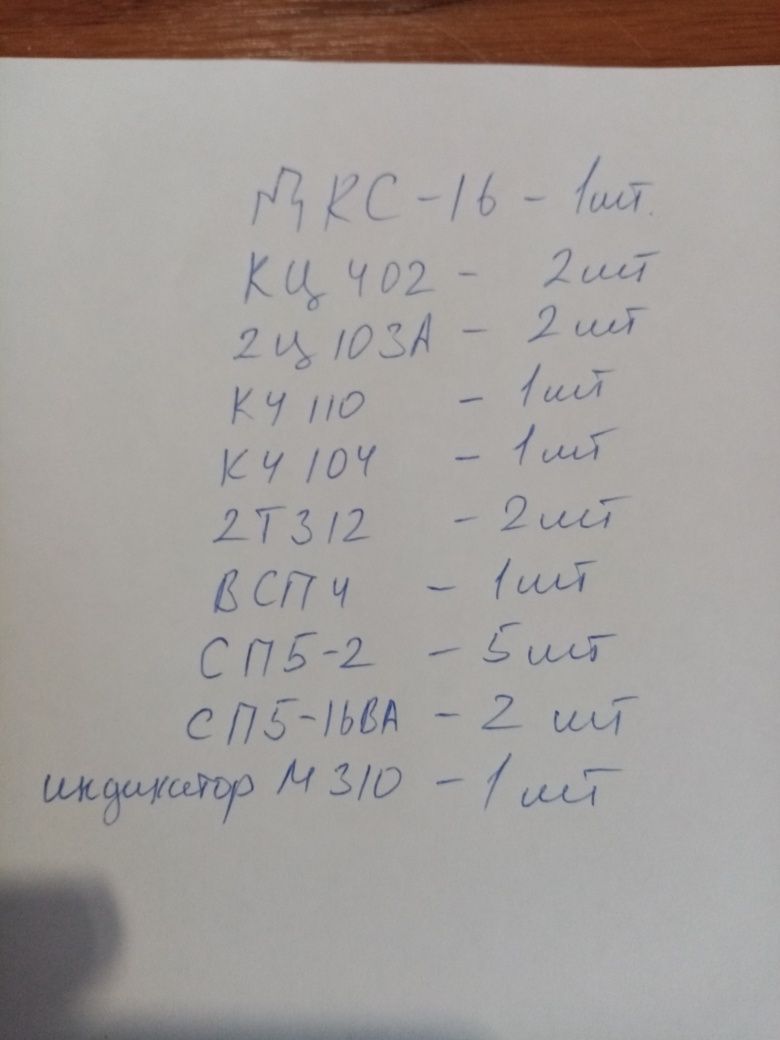 ДКС-16 - 1шт.
КЦ 402 - 2шт
2Ц 103А - 2шт
КУ 110 - 1шт
КУ 104 - 1шт
2Т312 - 2шт
ВСП4 - 1шт
СП5-2 - 5шт
СП5-16ВА - 2 шт
индикатор М310 - 1шт